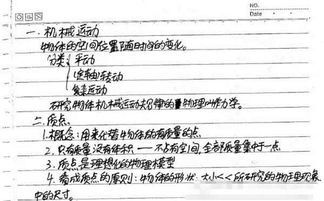 NO.
Date
一. 机械运动
物体的空间位置随时间的变化。
分类: 平动
转动
振动
研究物体机械运动规律的物理叫力学。
二. 质点
1. 概念: 用来代替物体的有质量的点
2. 只有质量没有体积——不占有空间, 全部质量集中于一点
3. 质点是理想化的物理模型
4. 看成质点的原则: 物体的形状、大小<<所研究的物理现象
中的尺寸。